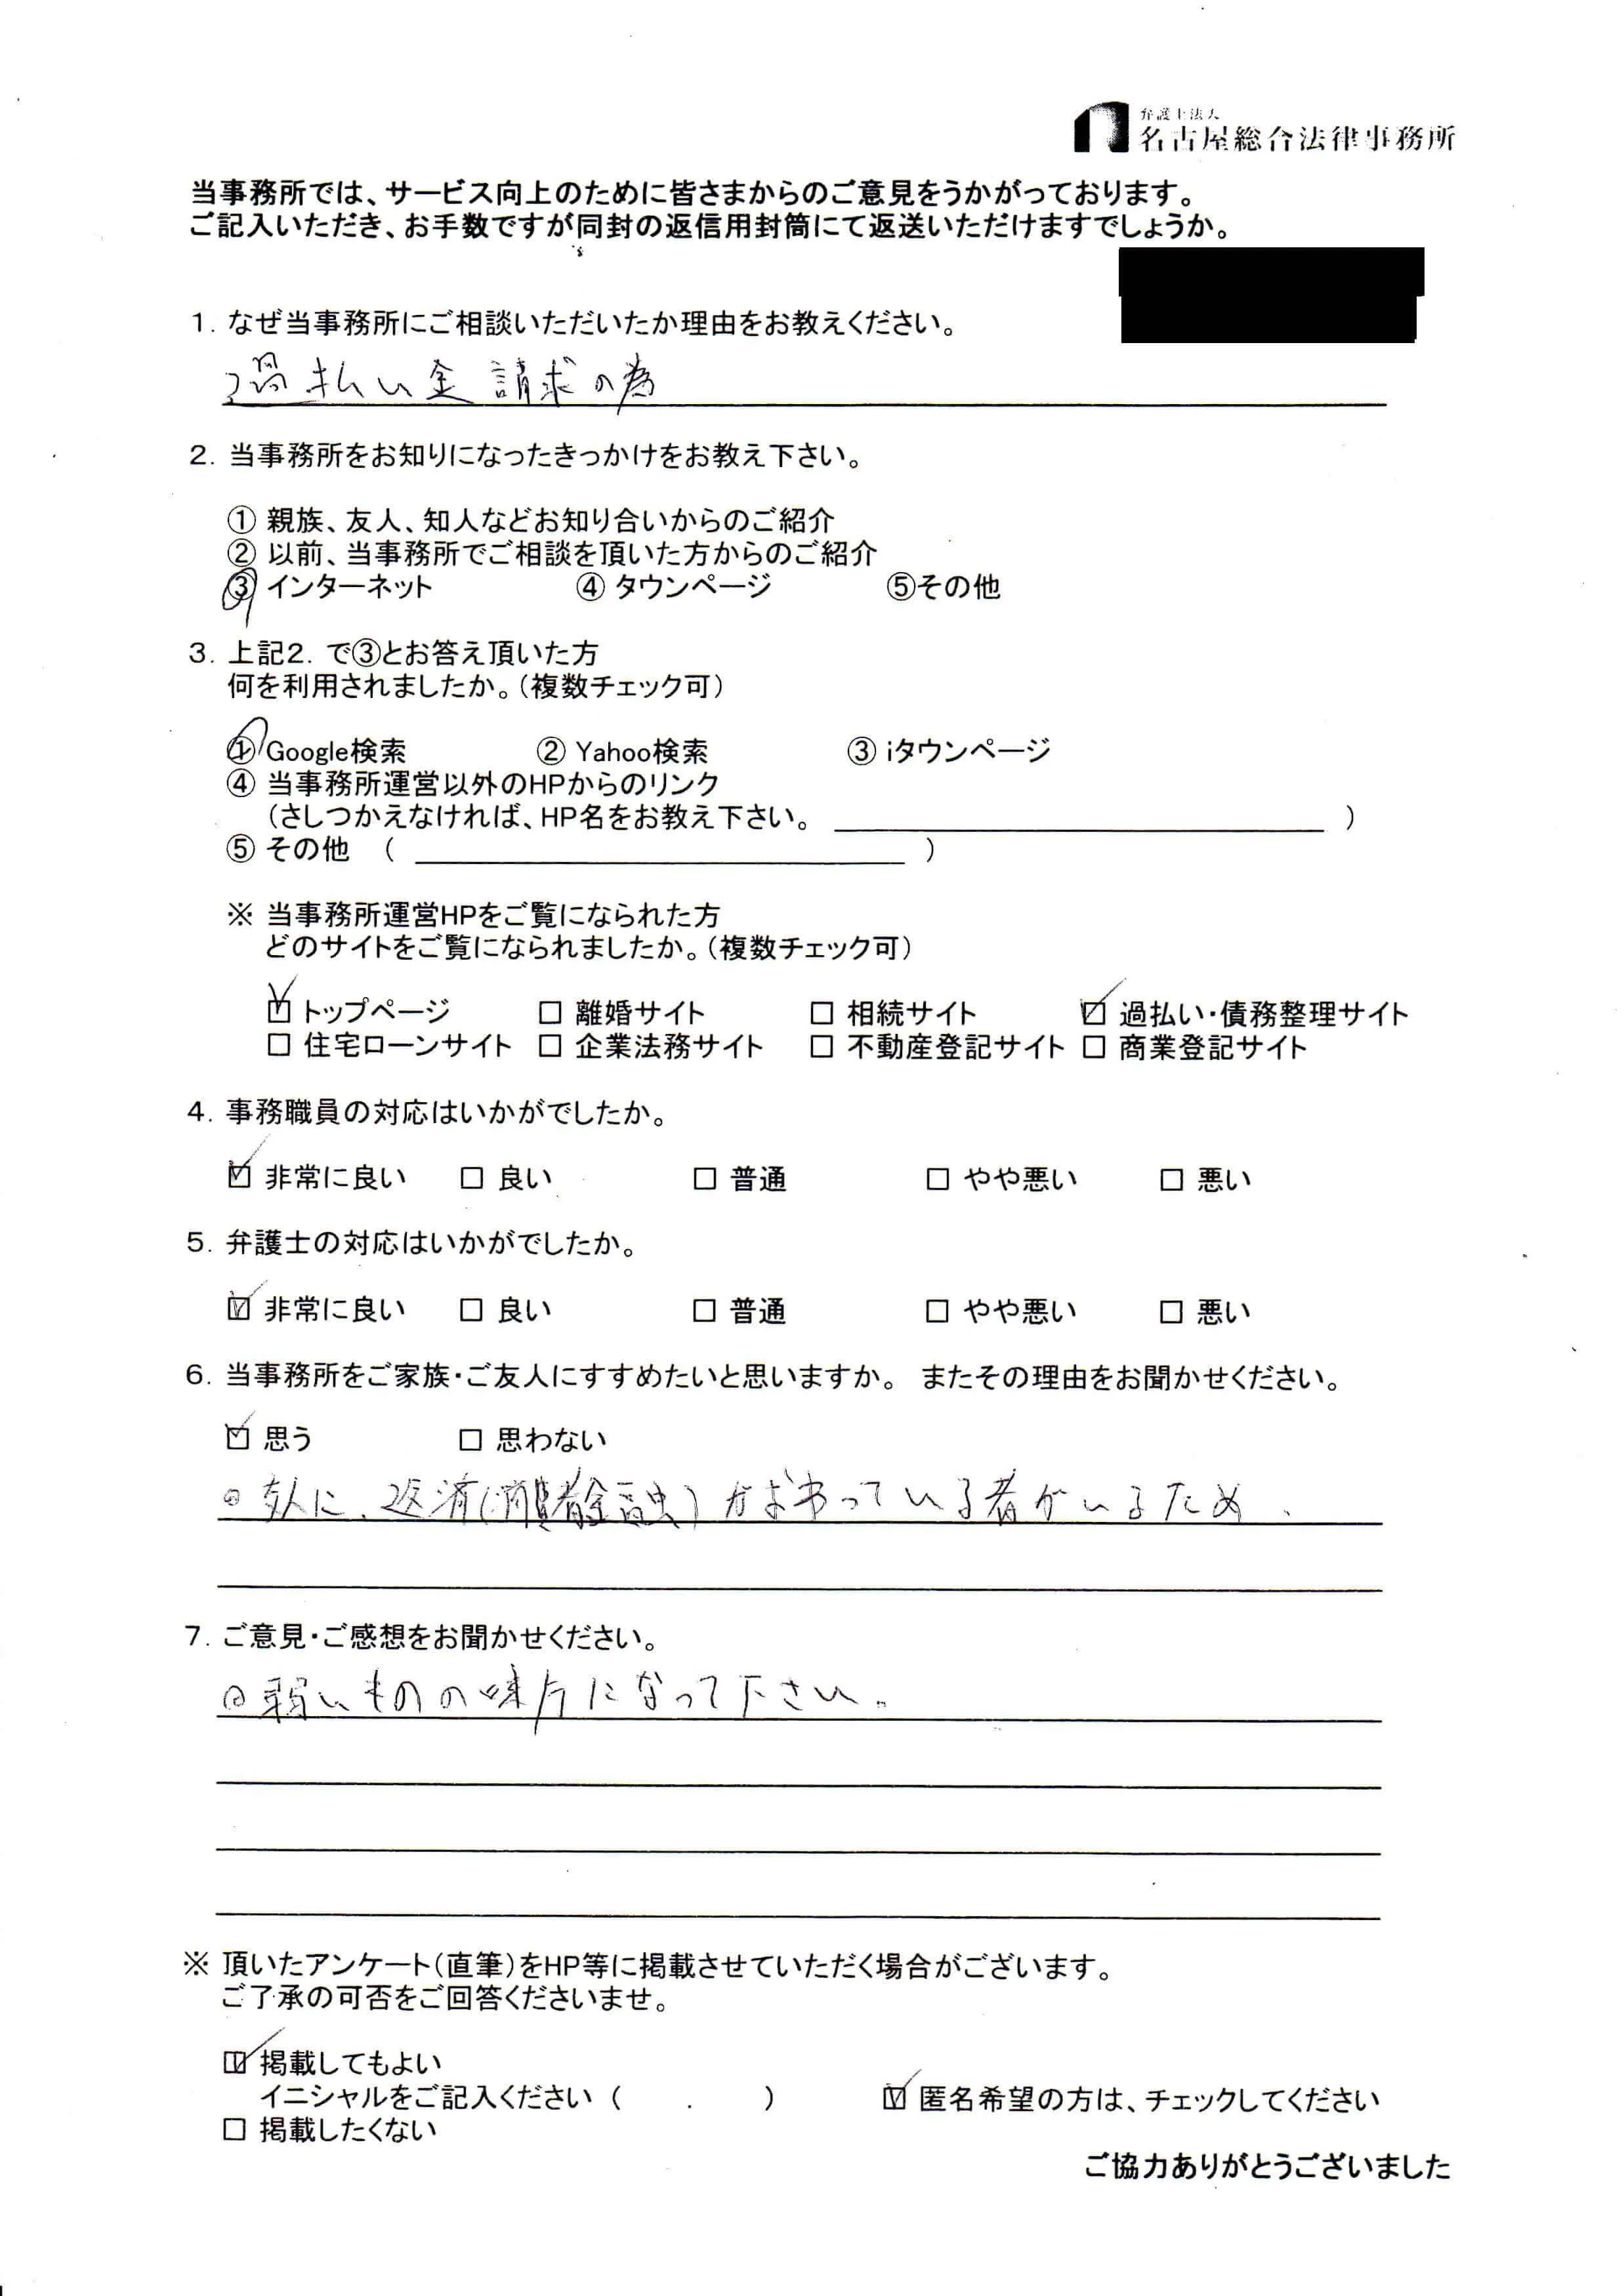 弁護士法人
名古屋総合法律事務所
当事務所では、サービス向上のために皆さまからのご意見をうかがっております。
ご記入いただき、お手数ですが同封の返信用封筒にて返送いただけますでしょうか。
1. なぜ当事務所にご相談いただいたか理由をお教えください。
過払い金請求の為
2. 当事務所をお知りになったきっかけをお教え下さい。
① 親族、友人、知人などお知り合いからのご紹介
② 以前、当事務所でご相談を頂いた方からのご紹介
③ インターネット ④ タウンページ ⑤その他
3. 上記2. で③とお答え頂いた方
何を利用されましたか。(複数チェック可)
① Google検索 ② Yahoo検索 ③ iタウンページ
④ 当事務所運営以外のHPからのリンク
(さしつかえなければ、HP名をお教え下さい。 )
⑤ その他 ( )
※ 当事務所運営HPをご覧になられた方
どのサイトをご覧になられましたか。(複数チェック可)
☑ トップページ □ 離婚サイト □ 相続サイト ☑ 過払い・債務整理サイト
□ 住宅ローンサイト □ 企業法務サイト □ 不動産登記サイト □ 商業登記サイト
4. 事務職員の対応はいかがでしたか。
☑ 非常に良い □ 良い □ 普通 □ やや悪い □ 悪い
5. 弁護士の対応はいかがでしたか。
☑ 非常に良い □ 良い □ 普通 □ やや悪い □ 悪い
6. 当事務所をご家族・ご友人にすすめたいと思いますか。 またその理由をお聞かせください。
☑ 思う □ 思わない
◎ 友人に、返済(消費者金融)がおわっている者がいるため、
7. ご意見・ご感想をお聞かせください。
◎ 弱いものの味方になって下さい。
※ 頂いたアンケート(直筆)をHP等に掲載させていただく場合がございます。
ご了承の可否をご回答くださいませ。
☑ 掲載してもよい
イニシャルをご記入ください ( . ) ☑ 匿名希望の方は、チェックしてください
□ 掲載したくない
ご協力ありがとうございました